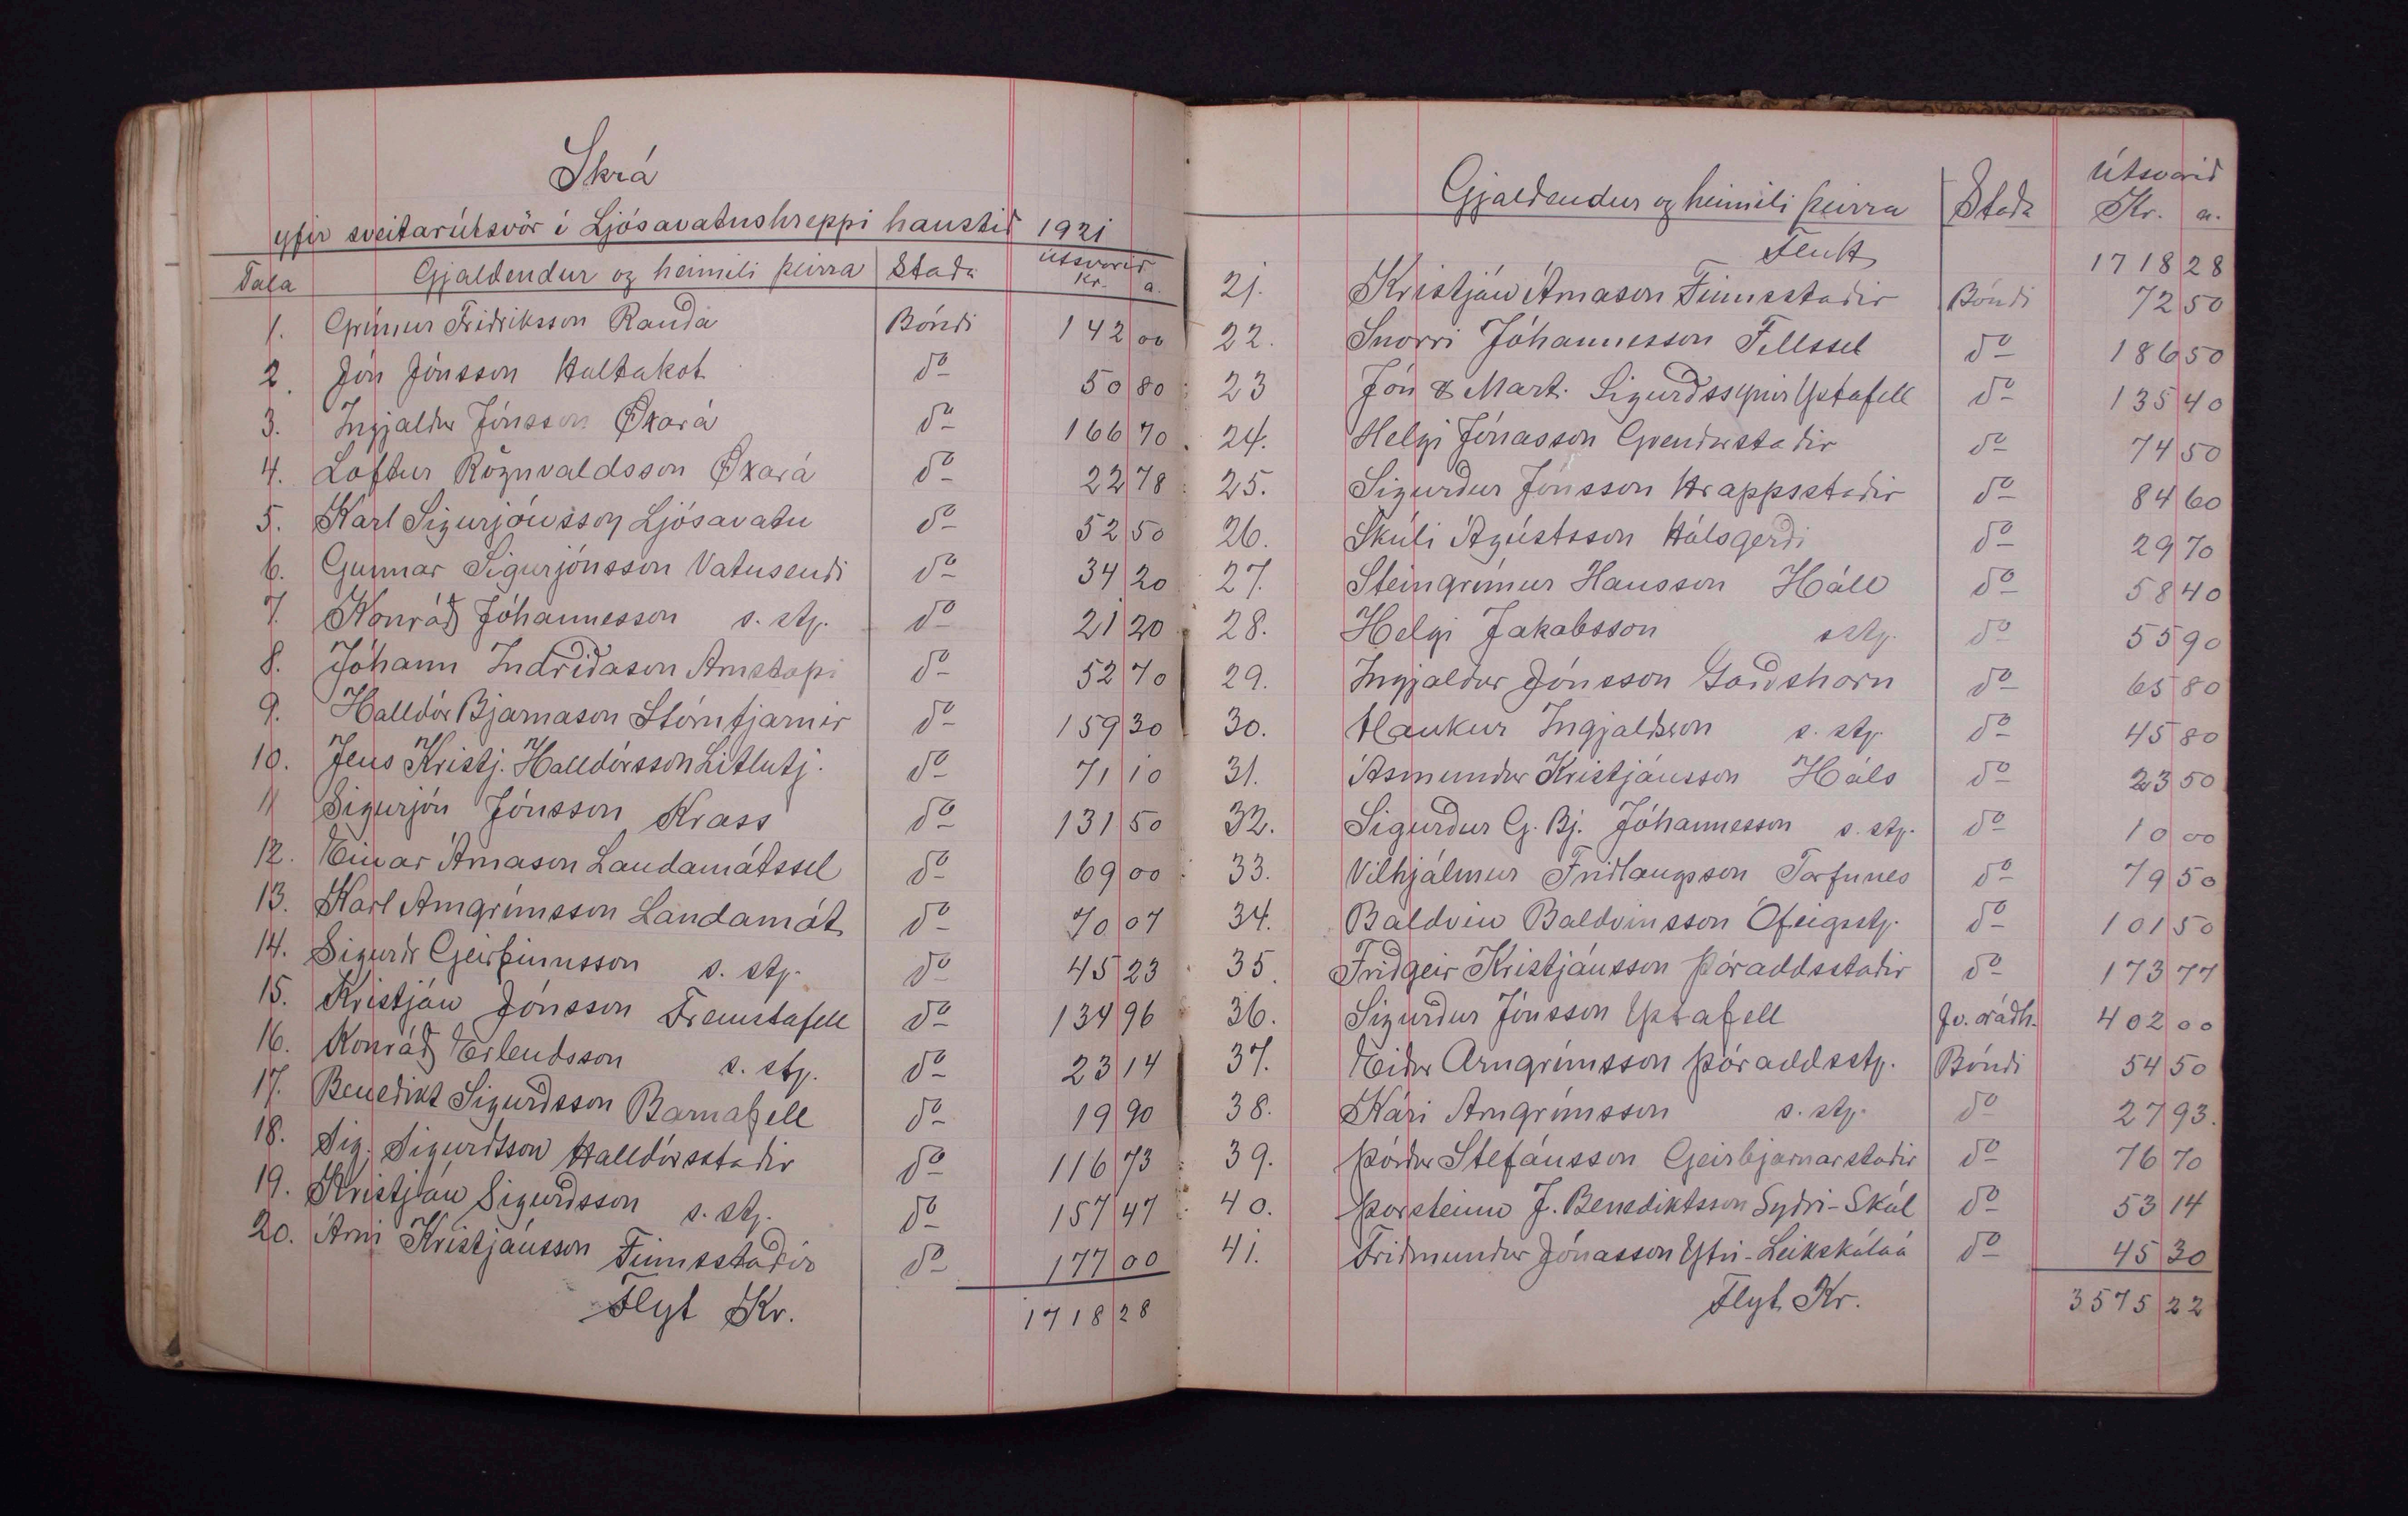 Skrá
yfir sveitarútsvör í Ljósavatnshreppi haustið 1921
Tala Gjaldendur og heimili þeirra Staða Útsvarið Kr. a.
1. Grímur Friðriksson Rauðá Bóndi 142 00
2. Jón Jónsson Holtakot do 50 80
3. Ingjaldur Jónsson Öxará do 166 70
4. Loftur Rögnvaldsson Öxará do 22 78
5. Karl Sigurjónsson Ljósavatn do 52 50
6. Gunnar Sigurjónsson Vatnsendi do 34 20
7. Konráð Jóhannesson s. st. do 21 20
8. Jóhann Indriðason Arnstapi do 52 70
9. Halldór Bjarnason Stórutjarnir do 159 30
10. Jens Kristj. Halldórsson Litlutj. do 71 10
11 Sigurjón Jónsson Kross do 131 50
12. Einar Árnason Landamótssel do 69 00
13. Karl Arngrímsson Landamót do 70 07
14. Sigurðr Geirfinnsson s. st. do 45 23
15. Kristján Jónsson Fremstafell do 134 96
16. Konráð Erlendsson s. st. do 23 14
17. Benedikt Sigurðsson Barnafell do 19 90
18. Sig. Sigurðsson Halldórsstaðir do 116 73
19. Kristján Sigurðsson s. st. do 157 47
20. Árni Kristjánsson Finnsstaðir do 177 00
Flyt Kr. 1718 28
Gjaldendur og heimili þeirra Staða Útsvarið Kr. a.
Flutt 1718 28
21. Kristján Árnason Finnsstaðir Bóndi 72 50
22. Snorri Jóhannesson Fellssel do 186 50
23 Jón & Mart. Sigurðssynir Ystafell do 135 40
24. Helgi Jónasson Gvendarstaðir do 74 50
25. Sigurður Jónsson Hrappsstaðir do 84 60
26. Skúli Ágústsson Hálsgerði do 29 70
27. Steingrímur Hansson Háls do 58 40
28. Helgi Jakobsson s st. do 55 90
29. Ingjaldur Jónsson Garðshorn do 65 80
30. Haukur Ingjaldsson s. st. do 45 80
31. Ásmundur Kristjánsson Háls do 23 50
32. Sigurður G. Bj. Jóhannesson s. st. do 10 00
33. Vilhjálmur Friðlaugsson Torfunes do 79 50
34. Baldvin Baldvinsson Ófeigsst. do 101 50
35. Friðgeir Kristjánsson Þóroddsstaðir do 173 77
36. Sigurður Jónsson Ystafell fv. ráðh. 402 00
37. Eiður Arngrímsson Þóroddsst. Bóndi 54 50
38. Kári Arngrímsson s. st. do 27 93.
39. Þórður Stefánsson Geirbjarnarstaðir do 76 70
40. Þorsteinn J. Benediktsson Syðri-Skál do 53 14
41. Friðmundur Jónasson Ytri-Leikskálaá do 45 30
Flyt Kr. 3575 22